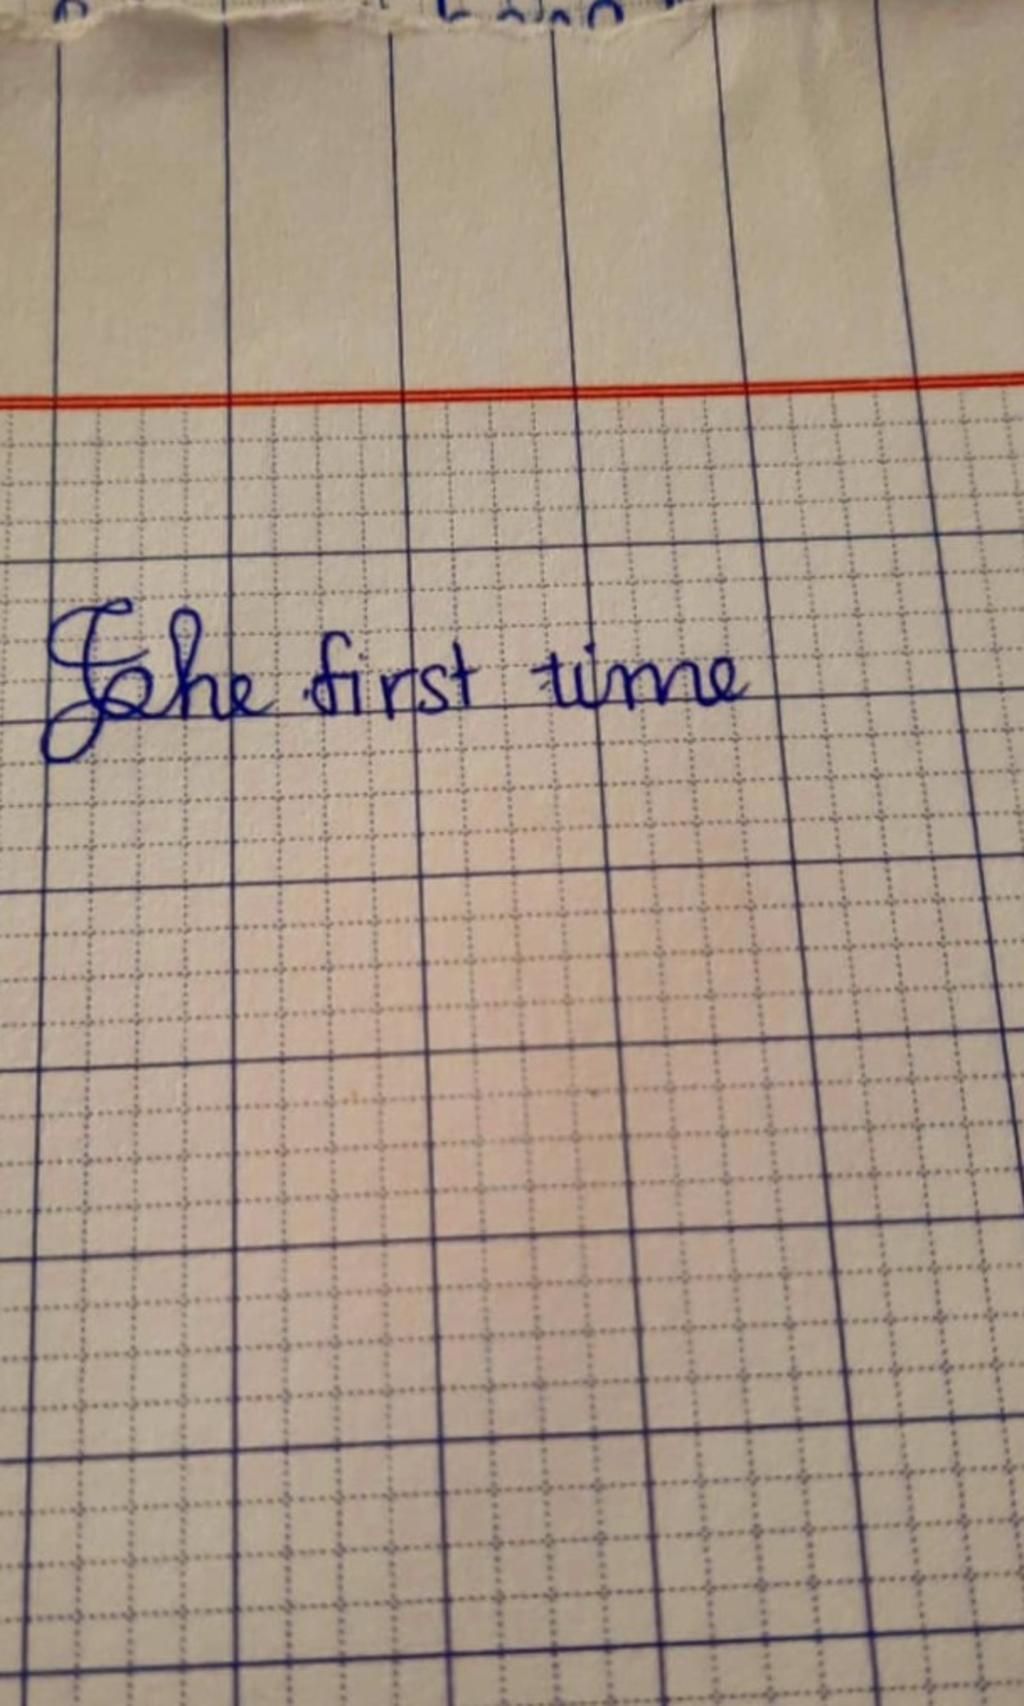 The first time